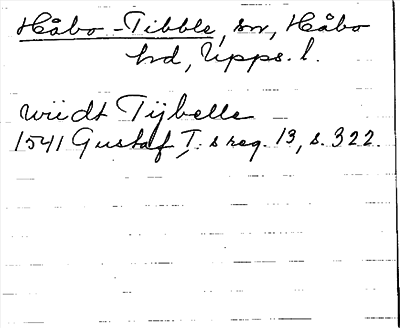 Håbo-Tibble, sn, Håbo
hd, Upps. l.
wiidt Tijbelle
1541 Gustaf I:s reg. 13, s. 322.